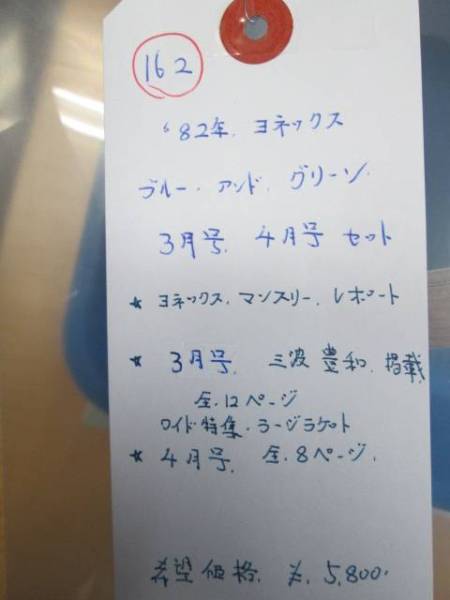 162
'82年. ヨネックス
ブルー. アンド. グリーン.
3月号. 4月号 セット
★ ヨネックス. マンスリー. レポート
★ 3月号. 三波 豊和. 掲載
全.12ページ
ワイド特集.ラージラケット
★ 4月号. 全.8ページ.
希望価格. ¥. 5,800.